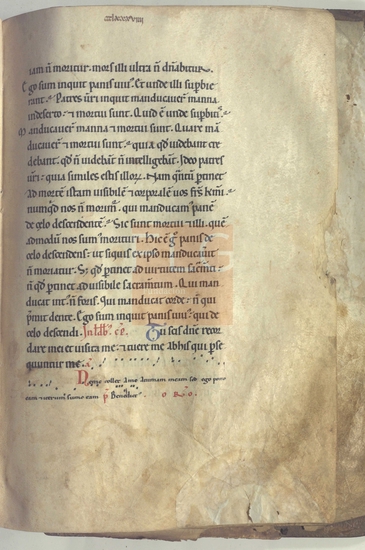 iam n̄ moritur. mors illi ultra n̄ dn̄abitur.
Ego sum inquit panis uiuus. Et unde illi superbie
rant. Patres ur̄i inquit manducauer̄ manna
in deserto. & mortui sunt. Quid ē unde superbiūt.
Manducauer̄ manna & mortui sunt. Quare mā
ducauer̄ & mortui sunt. quia qd̄ uidebant cre
debant. qd̄ n̄ uidebāt n̄ intelligebāt. Ideo patres
ur̄i. quia similes estis illor̄. Nam quantū ptinet
ad mortē istam uisibilē & corporalē
numqd̄ nos n̄ morim̄. qui manducam̄ panē
de celo descendentē. Sic sunt mortui & illi. quē
admodū nos sum̄ morituri. Hic ē g̊ panis de
celo descendens. ut siquis ex ipso manducauerit
n̄ moriatur. S; qd̄ ptinet ad uirtutem sacm̄ti.
n̄ qd̄ ptinet ad uisibile sacramtum. Qui man
ducat int̄. n̄ foris. Qui manducat corde. n̄ qui
p̄mit dente. Ego sum inquit panis uiuus. qui de
celo descendi. Tu scis dn̄e recor
dare mei et uisita me. & tuere me ab his qui pse
quuntur me.
animam meam sed ego pono
eam & iterum sumo eam